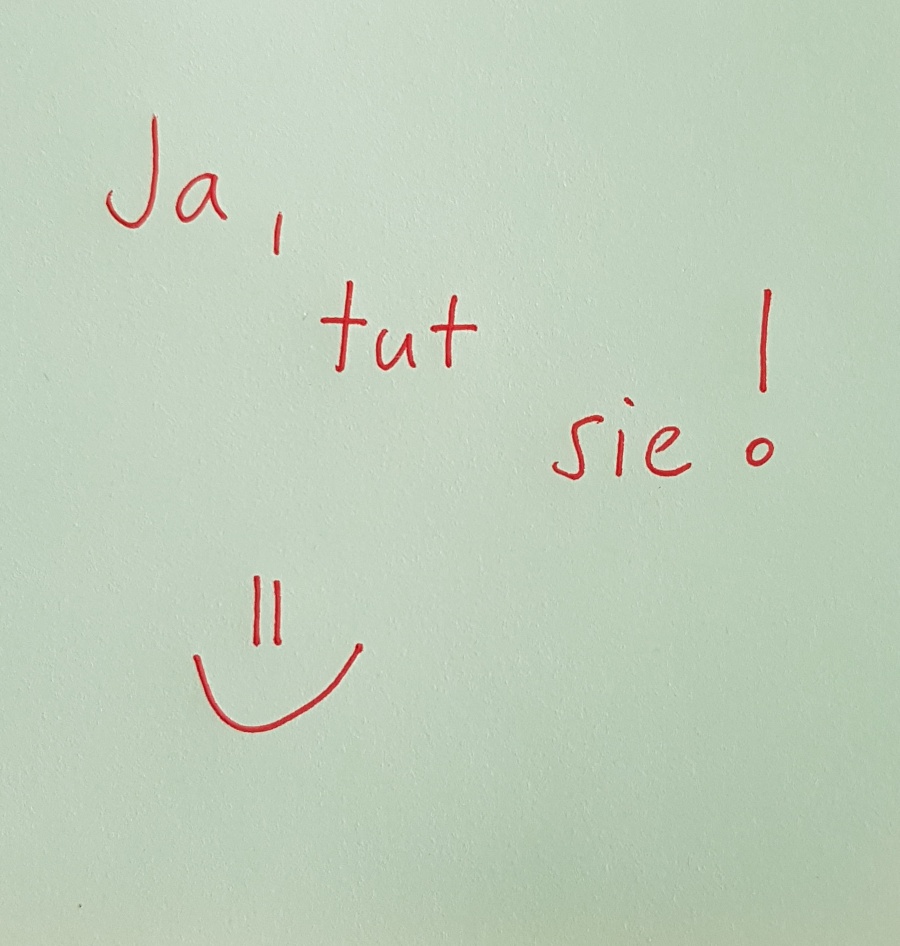 Ja,
tut
sie!